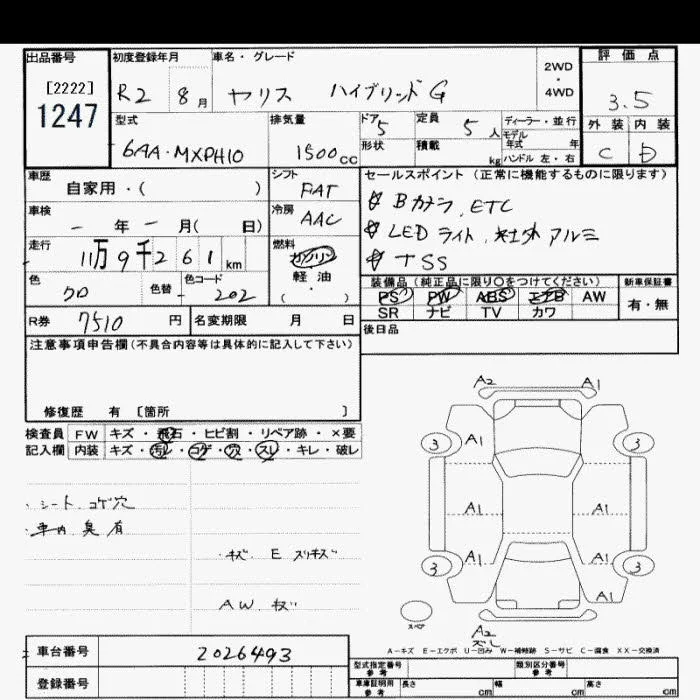 出品番号 初度登録年月 車名・グレード 2WD・4WD 評価点
[2222]
1247
R2 8月 ヤリス ハイブリッドG 3.5
型式 排気量 ドア 5 定員 5人 ディーラー・並行 外装 内装
モデル年式 年
6AA-MXPH10 1500cc 形状 積載 kg ハンドル 左・右 C D
車歴 シフト セールスポイント (正常に機能するものに限ります)
自家用・( ) FAT
Bカメラ, ETC
車検 冷房
ー年ー月( 日) AAC
LEDライト, 社外アルミ
走行 燃料
11万9千261km ガソリン
TSS
軽油
・
( )
色 色替 色コード
クロ 202
装備品 (純正品に限り○をつけてください) 新車保証書
PS PW ABS エアB AW 有・無
SR ナビ TV カワ
R券 7510円 名変期限 月 日
後日品
注意事項申告欄(不具合内容等は具体的に記入して下さい)
修復歴 有 [箇所 ]
検査員 FW キズ・飛石・ヒビ割・リペア跡・×要
記入欄 内装 キズ・汚レ・コゲ・穴・スレ・キレ・破レ
・シート コゲ穴
・車内 臭 有
・キズ E スリキズ
AW. キズ
A2 A1
3 A1 3
A1 A1
A1 A1
3 3
A1
スペア
A2
ズレ
A-キズ E-エクボ U-凹み W-補修跡 S-サビ C-腐食 XX-交換済
車台番号 2026493
登録番号
型式指定番号 参考 類別区分番号 参考
車庫証明用 参考 長さ cm 幅 cm 高さ cm